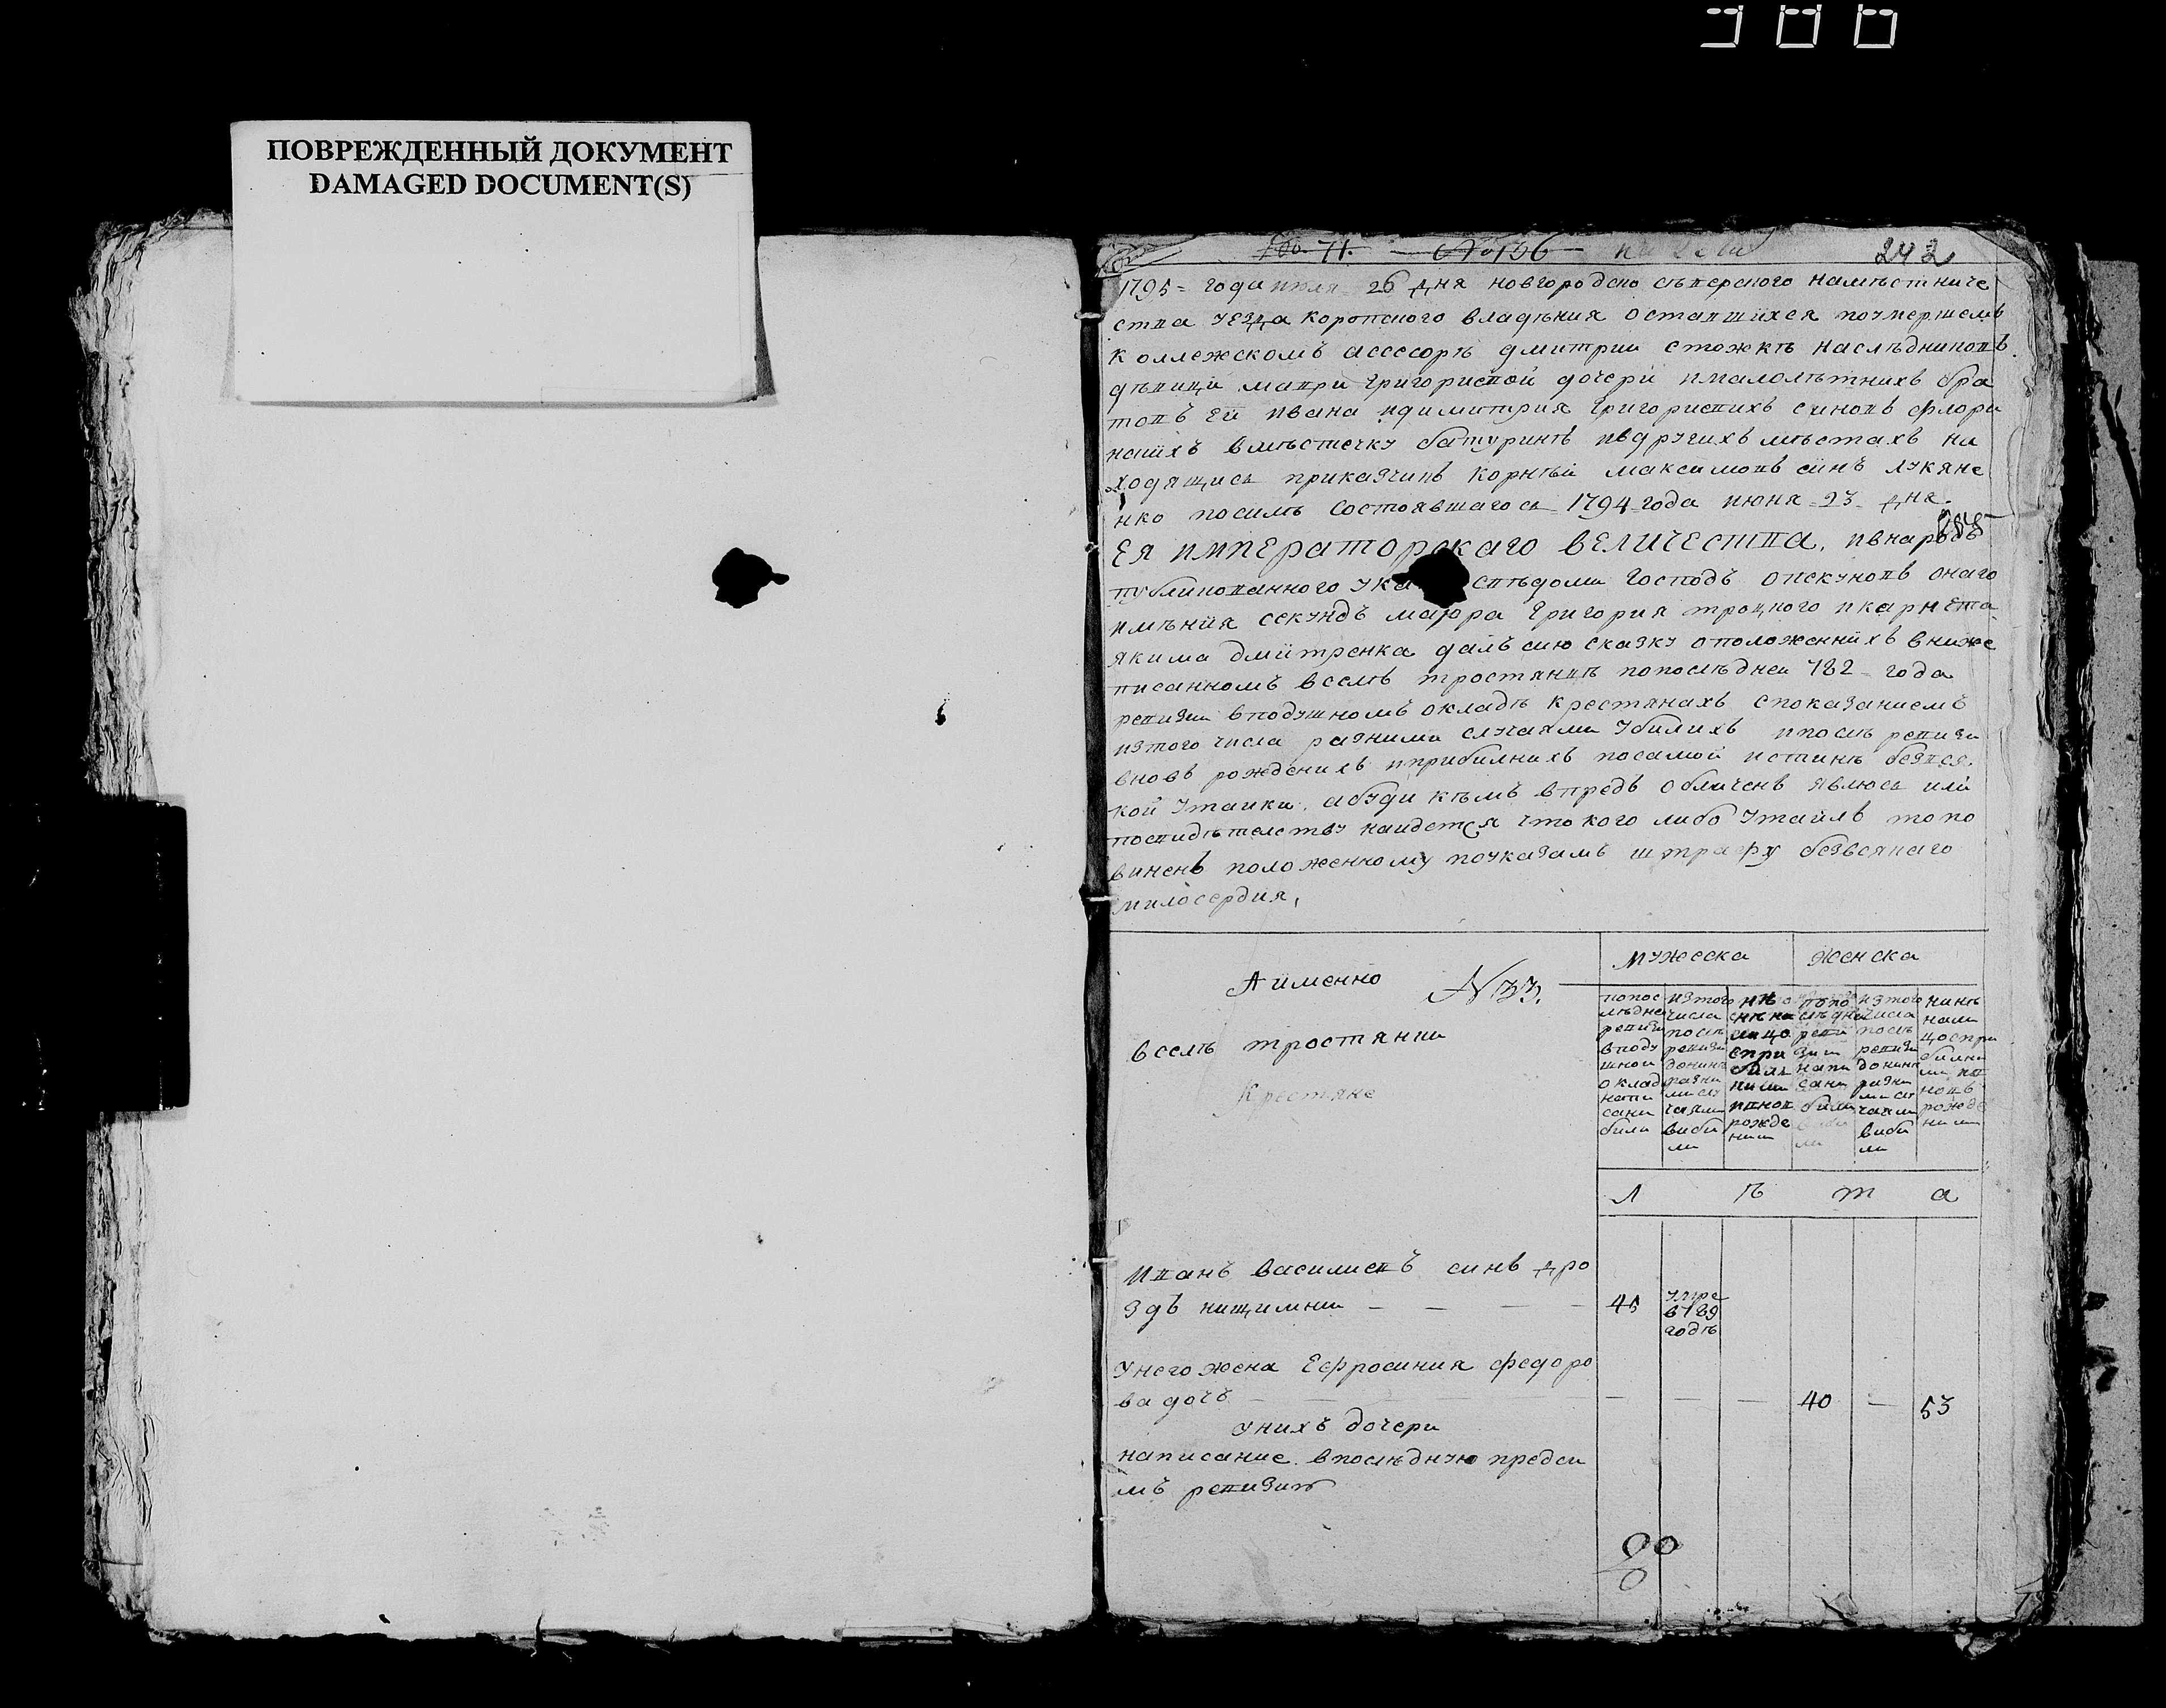 ПОВРЕЖДЕННЫЙ ДОКУМЕНТ
DAMAGED DOCUMENT(S)
71. №196
242
1795 = года июля 26 дня новгородско сѣверского намѣстниче
ства уезда коропского владѣния оставшихся поумершемъ
коллежскомъ асессорѣ дмитрии стожкѣ наслѣдниковъ
дѣвици маври григориевой дочери ималолѣтнихъ бра
товъ ей ивана идимитрия григориевихъ синовъ
вмѣстечку батуринѣ ивдругихъ мѣстахъ на
ходящись приказчикъ корнѣй максимовъ синъ лукяне
нко посилѣ состоявшагось 1794 года июня 23 дня
Ея императорскаго величества, ивнародъ
публикованного ука сведоми господъ опекуновъ онаго
имѣнїя секундъ маюра григория троцкого икарнета
якима дмитренка далъ сию сказку оположеннихъ вниже
писанномъ вселѣ тростянцѣ попослѣдней 782 года
ревизии вподушномъ окладѣ крестянахъ споказаниемъ
изтого числа разними случаями убилихъ ипослѣ ревизи
вновь рожденихъ иприбилнихъ посамой истинѣ безвся
кой утайки, абуди кѣмъ впредь обличенъ явлюсь или
посвидѣтелству найдется что кого либо утаилъ топо
виненъ положенному поуказамъ штрафу безвсякаго
милосердия,
Аименно №33.
вселѣ тростянци
Крестяне
мужеска женска
попос
лѣдней
ревизи
вподу
шной
оклад
напи
сани
били
изтого
числа
послѣ
ревизи
донинѣ
разни
ми слу
чаями
виби
ли
рожде
ними
изтого
числа
послѣ
ревизи
донинѣ
разни
ми слу
чаями
виби
ли
нинѣ
нали
цоспри
билни
ми
новъ
рожде
ними
л ѣ т а
Иванъ василиевъ синъ дро
здъ нищимний — — — — 45 умре в789 годѣ
Унего жена Ефросиния федоро
ва дочъ — — — — 40 — 53
унихъ дочери
написание впослѣдную предси
мъ ревизию